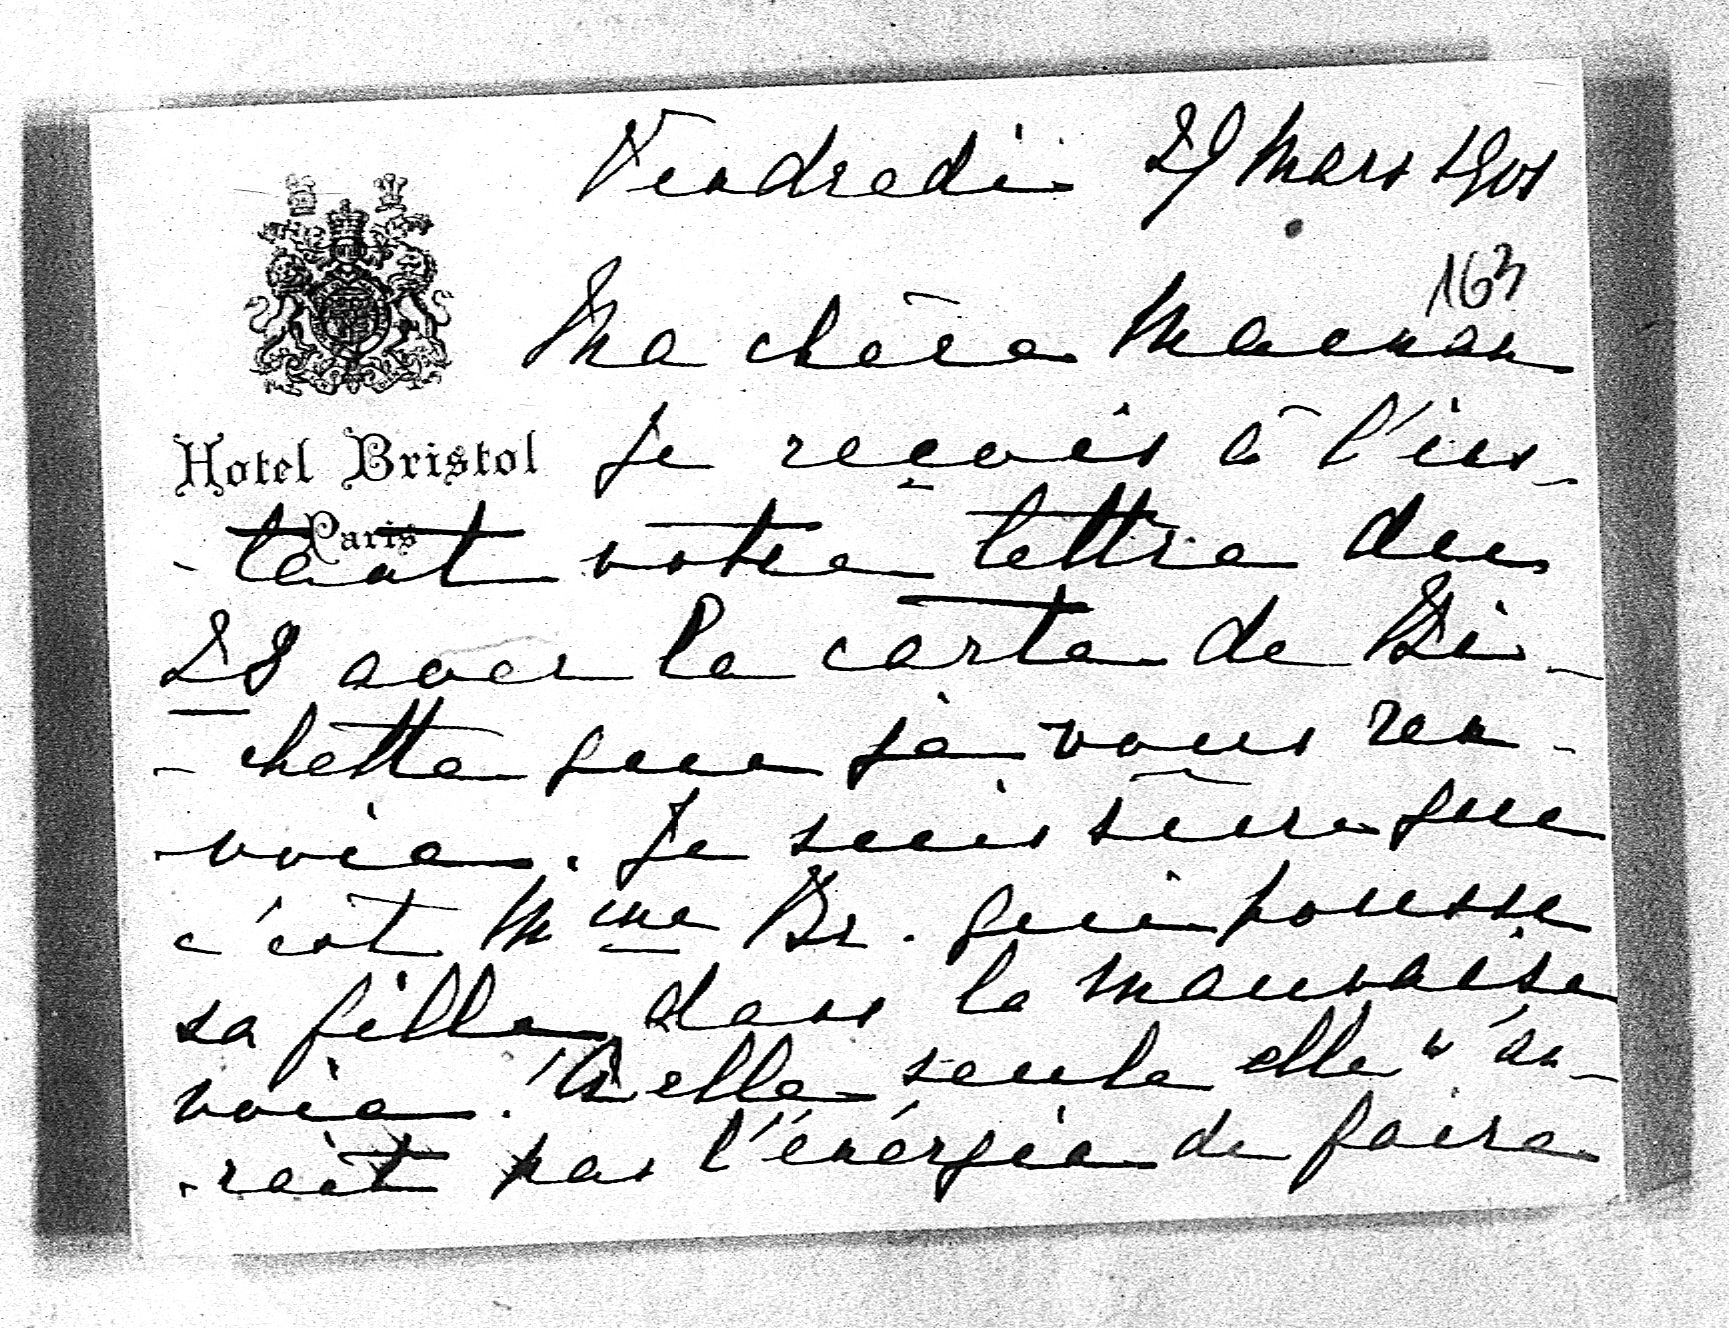 Vendredi 29 Mars 1901
163
Ma chère Maman
Hotel Bristol
Paris
Je reçois à l'ins-
-tant votre lettre du
28 avec la carte de Bi-
-chette que je vous ren-
-voie. Je suis sûre que
c'est Mme Br. qui pousse
sa fille dans la mauvaise
voie. A elle seule elle n'au-
-rait pas l'énergie de faire